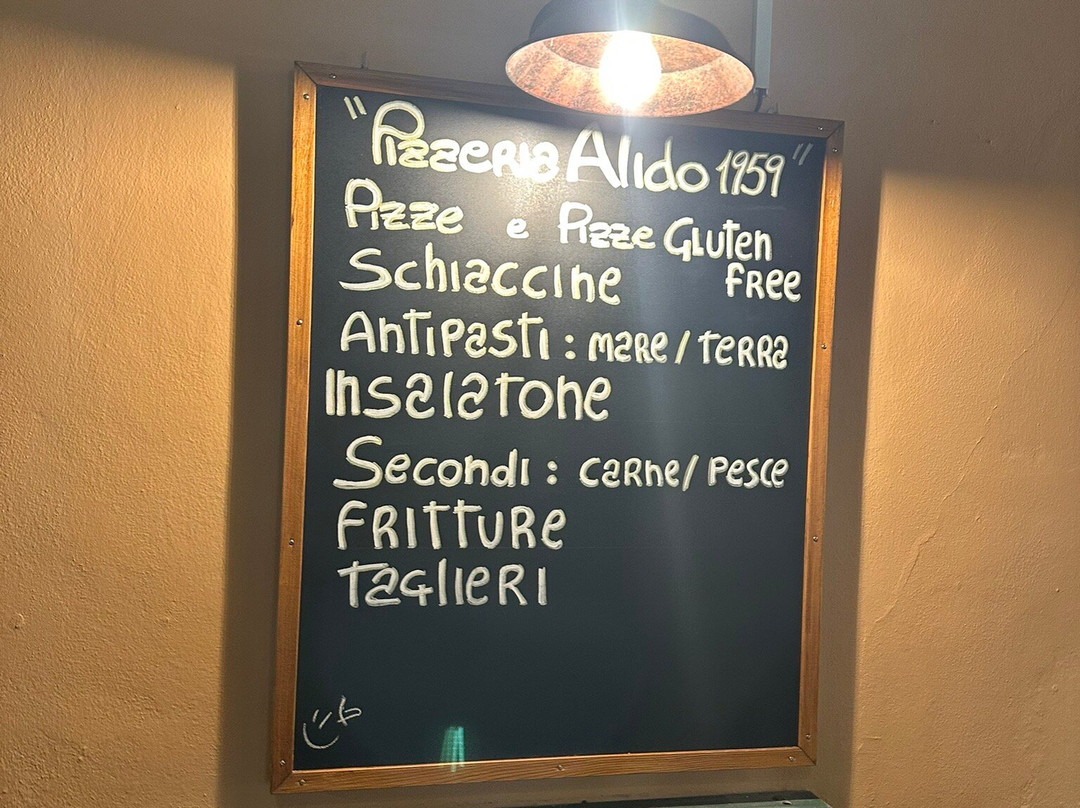 "Pizzeria Alido 1959"
Pizze e Pizze Gluten
free
Schiaccine
Antipasti : mare / terra
Insalatone
Secondi : carne / pesce
Fritture
Taglieri